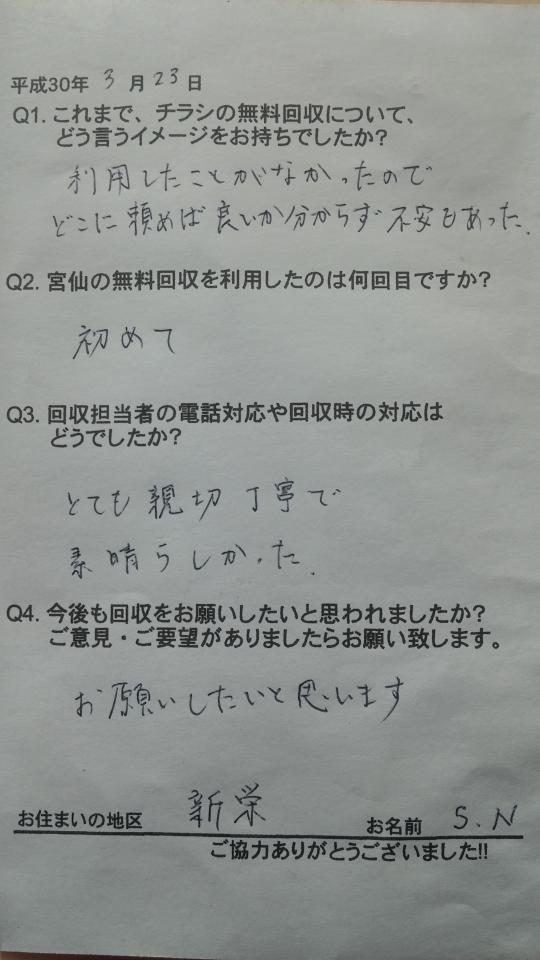 平成30年 3月23日
Q1. これまで、チラシの無料回収について、
どう言うイメージをお持ちでしたか?
利用したことがなかったので
どこに頼めば良いか分からず不安もあった.
Q2. 宮仙の無料回収を利用したのは何回目ですか?
初めて
Q3. 回収担当者の電話対応や回収時の対応は
どうでしたか?
とても親切丁寧で
素晴らしかった.
Q4. 今後も回収をお願いしたいと思われましたか?
ご意見・ご要望がありましたらお願い致します。
お願いしたいと思います
お住まいの地区 新栄 お名前 S.N
ご協力ありがとうございました!!